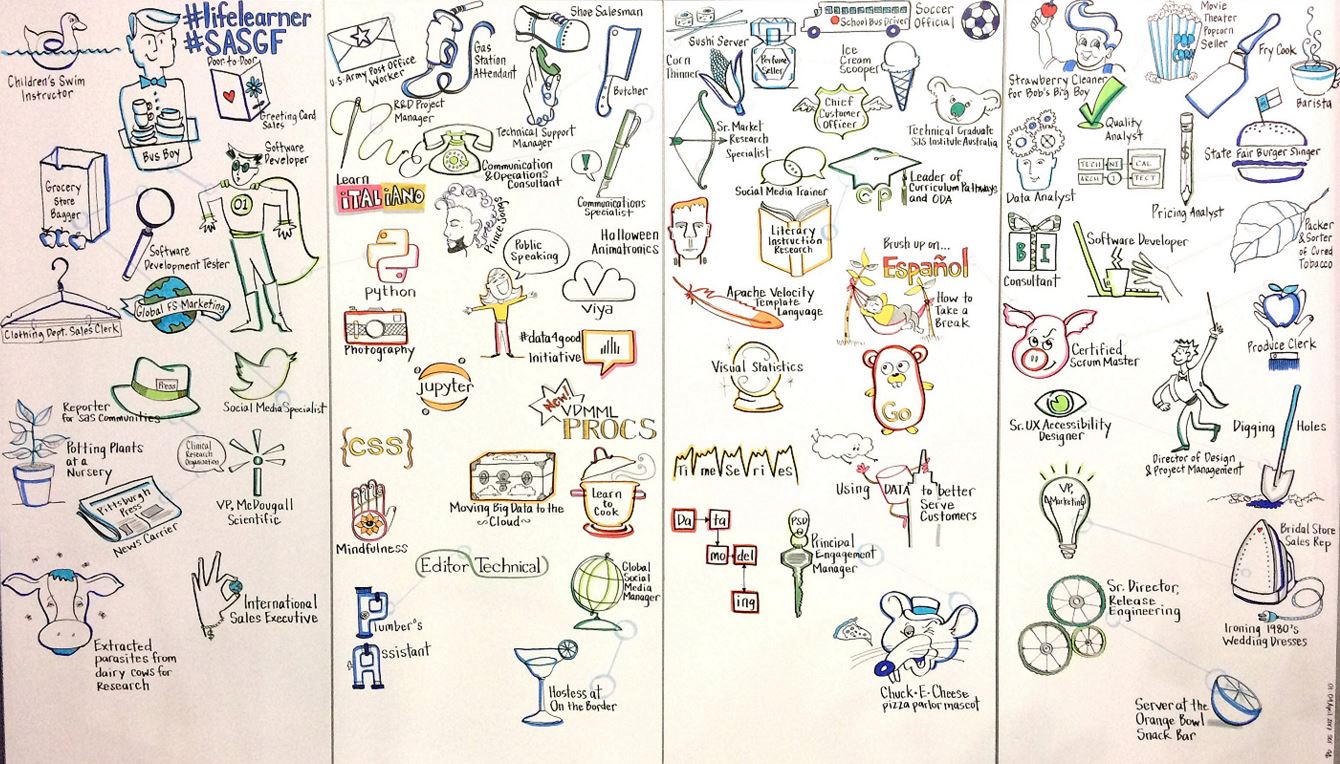 #lifelearner
#SASGF
Children's Swim
Instructor
Door-to-Door
Greeting Card
Sales
Bus Boy
Grocery
Store
Bagger
Software
Developer
01
Software
Development Tester
Global FS Marketing
Clothing Dept. Sales Clerk
Press
Reporter
for SAS Communities
Social Media Specialist
Potting Plants
at a
Nursery
Clinical
Research
Organization
VP, McDougall
Scientific
Pittsburgh
Press
News Carrier
Extracted
parasites from
dairy cows for
Research
International
Sales Executive
U.S. Army Post Office
Worker
Gas
Station
Attendant
Shoe Salesman
Butcher
R&D Project
Manager
Technical Support
Manager
Communication
& Operations
Consultant
!
Communications
Specialist
Learn
iTALiANO
Prince Songs
Public
Speaking
Halloween
Animatronics
python
viya
Photography
#data4good
Initiative
jupyter
New!
VDMML
PROCS
{CSS}
Moving Big Data to the
Cloud
Learn
to
Cook
Mindfulness
Editor Technical
Global
Social
Media
Manager
Plumber's
Assistant
Hostess at
On the Border
Sushi Server
Perfume
Seller
School Bus Driver
Soccer
Official
Corn
Thinner
Ice
Cream
Scooper
Chief
Customer
Officer
Technical Graduate
SAS Institute Australia
Sr. Market
Research
Specialist
Social Media Trainer
cp
Leader of
Curriculum Pathways
and ODA
Literary
Instruction
Research
Brush up on...
Español
How to
Take a
Break
Apache Velocity
Template
Language
Visual Statistics
Go
TimeSeries
Using DATA to better
Serve
Customers
Da ta
mo del
ing
PSD
Principal
Engagement
Manager
Chuck-E-Cheese
pizza parlor mascot
Strawberry Cleaner
for Bob's Big Boy
POP
CORN
Movie
Theater
Popcorn
Seller
Fry Cook
Barista
Quality
Analyst
State Fair Burger Slinger
Data Analyst
TECH NI CAL
ARCH I TECT
$
Pricing Analyst
BI
Consultant
Software Developer
Packer
& Sorter
of Cured
Tobacco
Certified
Scrum Master
Produce Clerk
Sr. UX Accessibility
Designer
Director of Design
& Project Management
Digging Holes
VP,
Marketing
Bridal Store
Sales Rep
Sr. Director,
Release
Engineering
Ironing 1980's
Wedding Dresses
Server at the
Orange Bowl
Snack Bar